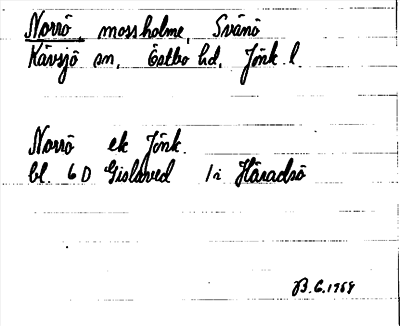 Norrö, mossholme, Svänö
Kävsjö sn, Östbo hd, Jönk. l.
Norrö ek Jönk.
bl. 6D Gislaved 1i Häradsö
B.G. 1969